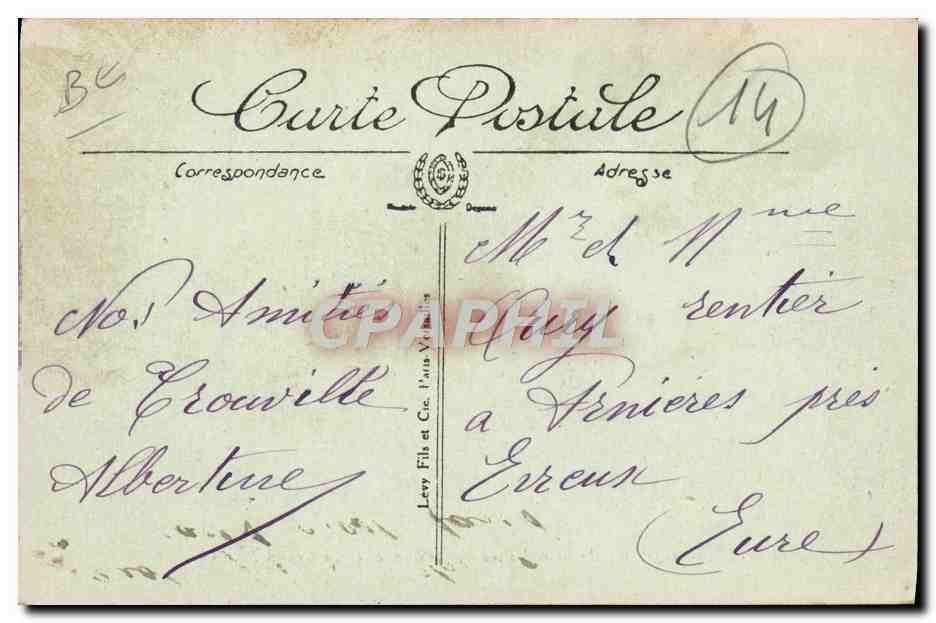 BE
Carte Postale
14
Correspondance
Adresse
Nos Amitiés
de Trouville
Albertine
Levy Fils et Cie. Paris-Versailles
Mr et Mme
rentier
a Arnieres près
Evreux
(Eure)
CPAPHIL